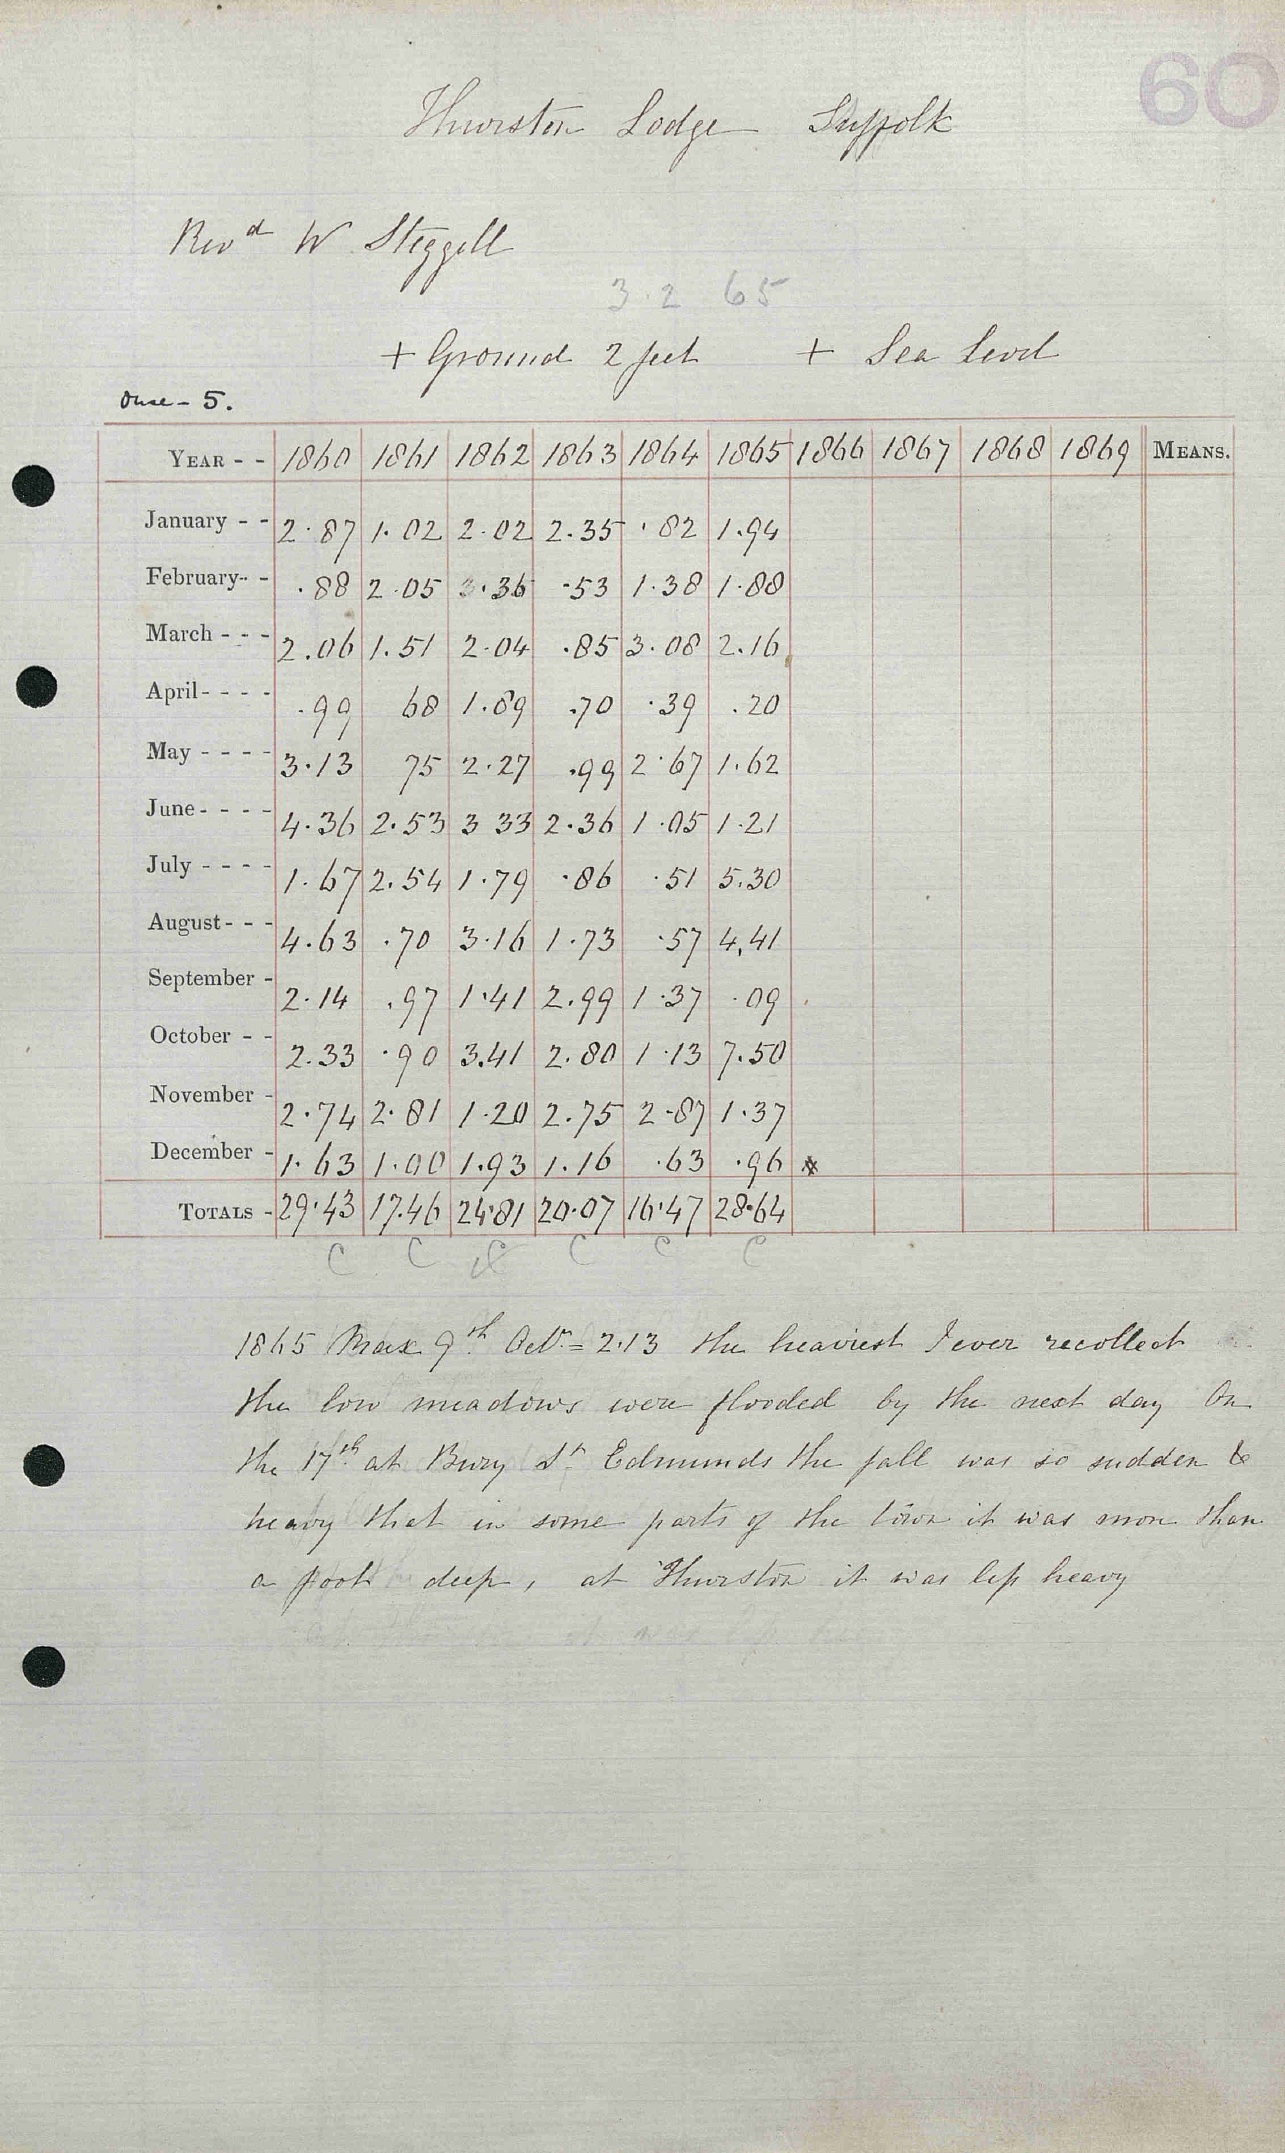 60
Thurston Lodge Suffolk
Revd W Steggall
3.2 65
+ Ground 2 feet + Sea Level
Ouse - 5.
YEAR - - 1860 1861 1862 1863 1864 1865 1866 1867 1868 1869 MEANS.
January - - 2.87 1.02 2.02 2.35 .82 1.94
February - - .88 2.05 3.36 .53 1.38 1.88
March - - - 2.06 1.51 2.04 .85 3.08 2.16
April - - - - .99 68 1.89 .70 .39 .20
May - - - - 3.13 75 2.27 .99 2.67 1.62
June - - - - 4.36 2.53 3 33 2.36 1.05 1.21
July - - - - 1.67 2.54 1.79 .86 .51 5.30
August - - - 4.63 .70 3.16 1.73 .57 4,41
September - 2.14 .97 1.41 2.99 1.37 .09
October - - 2.33 .90 3.41 2.80 1.13 7.50
November - 2.74 2.81 1.20 2.75 2.87 1.37
December - 1.63 1.00 1.93 1.16 .63 .96 *
TOTALS - 29.43 17.46 24.81 20.07 16.47 28.64
C C C C C C
1865 Max 9th Octr = 2.13 the heaviest I ever recollect
the low meadows were flooded by the next day On
the 17th at Bury St Edmunds the fall was so sudden &
heavy that in some parts of the town it was more than
a foot deep, at Thurston it was less heavy